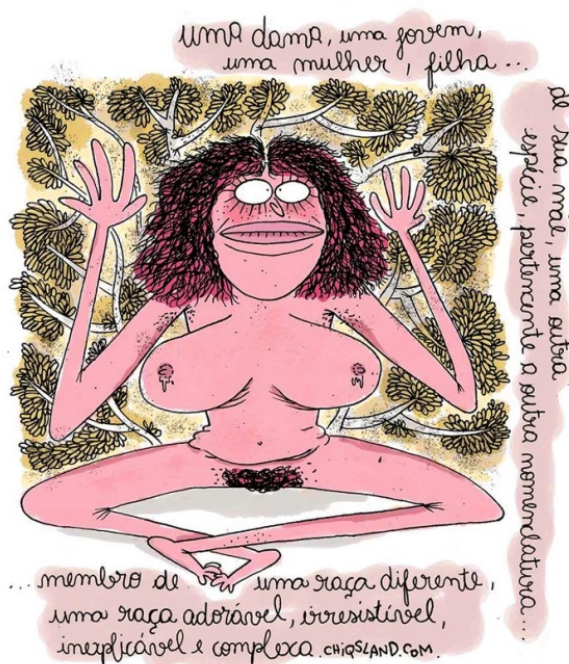 uma dama, uma jovem,
uma mulher, filha...
de sua mãe, uma outra
espécie, pertencente a outra nomenclatura...
... membro de uma raça diferente,
uma raça adorável, irresistível,
inexplicável e complexa. CHiQSLAND.COM.